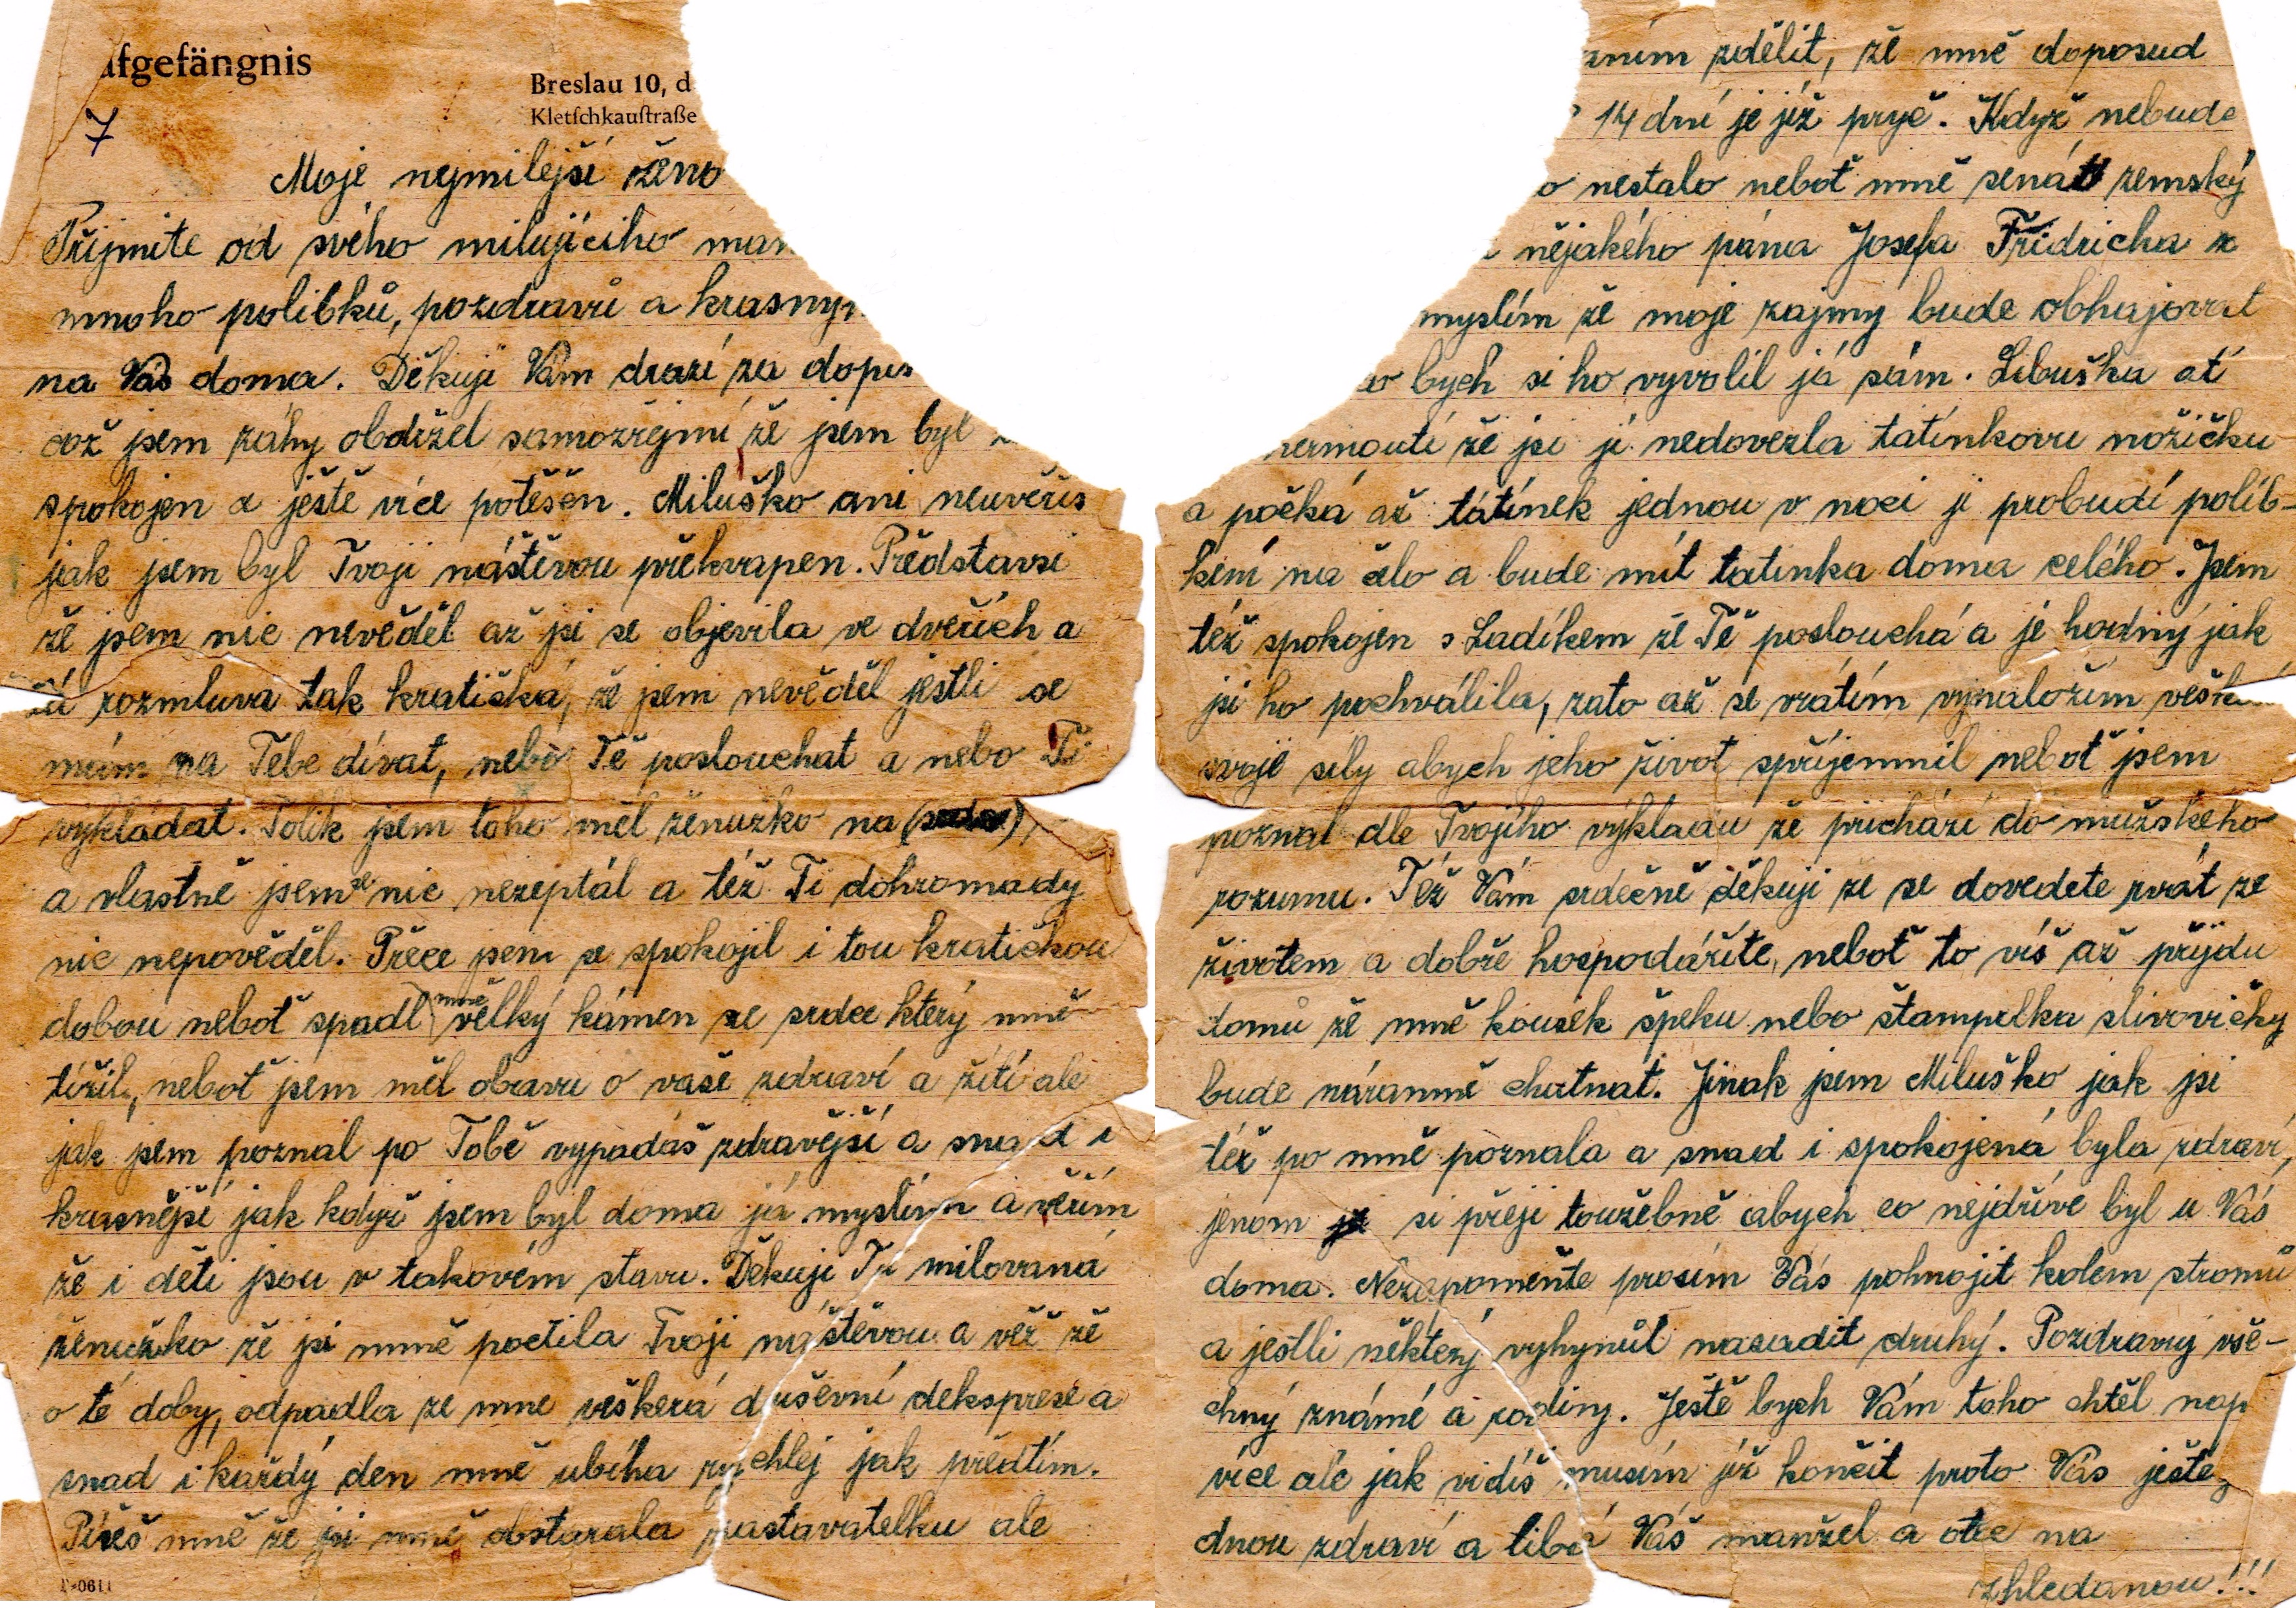 afgefängnis
Breslau 10, d
Kletſchkauſtraße
7
Moje nejmilejší ženo
Přijmite od svého milujíciho man
mnoho polibků, pozdravů a krasnyn
na Vás doma. Děkuji Vám drazí za dopis
což jsem záhy obdržel samozřejmí že jsem byl
spokojen a ještě více potěšen. Miluško ani neuvěřís
jak jsem byl Tvoji náštěvou překvapen. Představsi
že jsem nic nevěděl až jsi se objevila ve dveřích a
tá rozmluva tak kratičká, že jsem nevěděl jestli se
mám na Tebe dívat, nebo Tě poslouchat a nebo Ti
vykládat. Tolik jsem toho měl ženuško na ( )
a vlastně jsem se nic nezeptál a též Ti dohromady
nic nepověděl. Přece jsem se spokojil i tou kratičkou
dobou neboť spadl mně velký kámen ze srdce který mně
tížil, neboť jsem měl obavu o vaše zdraví a žití ale
jak jsem poznal po Tobě vypadáš zdravější a snad i
krasnější jak když jsem byl doma já myslím a věřím
že i děti jsou v takovém stavu. Děkuji Ti milovaná
ženuško že jsi mně poctila Tvoji naštěvou a věř že
o té doby, odpadla ze mne veškerá duševní deksprese a
snad i každý den mně ubíha rychlej jak předtím.
Píšeš mně že jsi mně obstarala zastavatelku ale
D-0611
zním zdělit, že mně doposud
14 dní je již pryč. Když nebude
o nestalo neboť mně senát zemský
nějakého pána Josefa Fridricha z
myslím že moje zajmy bude obhajovat
o bych si ho vyvolil já sám. Libuška ať
nermoutí že jsi jí nedovezla tatínkovu nožičku
a počká až tátínek jednou v noci ji probudí políb-
kem na čelo a bude mít tatinka doma celého. Jsem
též spokojen s Ladíkem že Tě poslouchá a je hodný jak
jsi ho pochválila, zato až se vrátím vynaložím vešk
svoje síly abych jeho život spříjemnil neboť jsem
poznal dle Tvojího výkladu že prichází do mužského
rozumu. Též Vám srdečně děkuji že se dovedete rvát ze
životem a dobře hospodáříte, neboť to víš až příjdu
domů že mně kousek špeku nebo štampelka slivovičky
bude náramně chutnat. Jinak jsem Miluško jak jsi
též po mně poznala a snad i spokojená byla zdraví,
jenom si přeji toužebně abych co nejdříve byl u Vás
doma. Nezapomeňte prosím Vás pohnojit kolem stromů
a jestli některý vyhynul nasadit druhý. Pozdravuj vše-
chný známé a rodiny. Ještě bych Vám toho chtěl nap
více ale jak vidíš musím již končit proto Vás ješte
dnou zdraví a líbá Váš manžel a otec na
zhledanou!!!